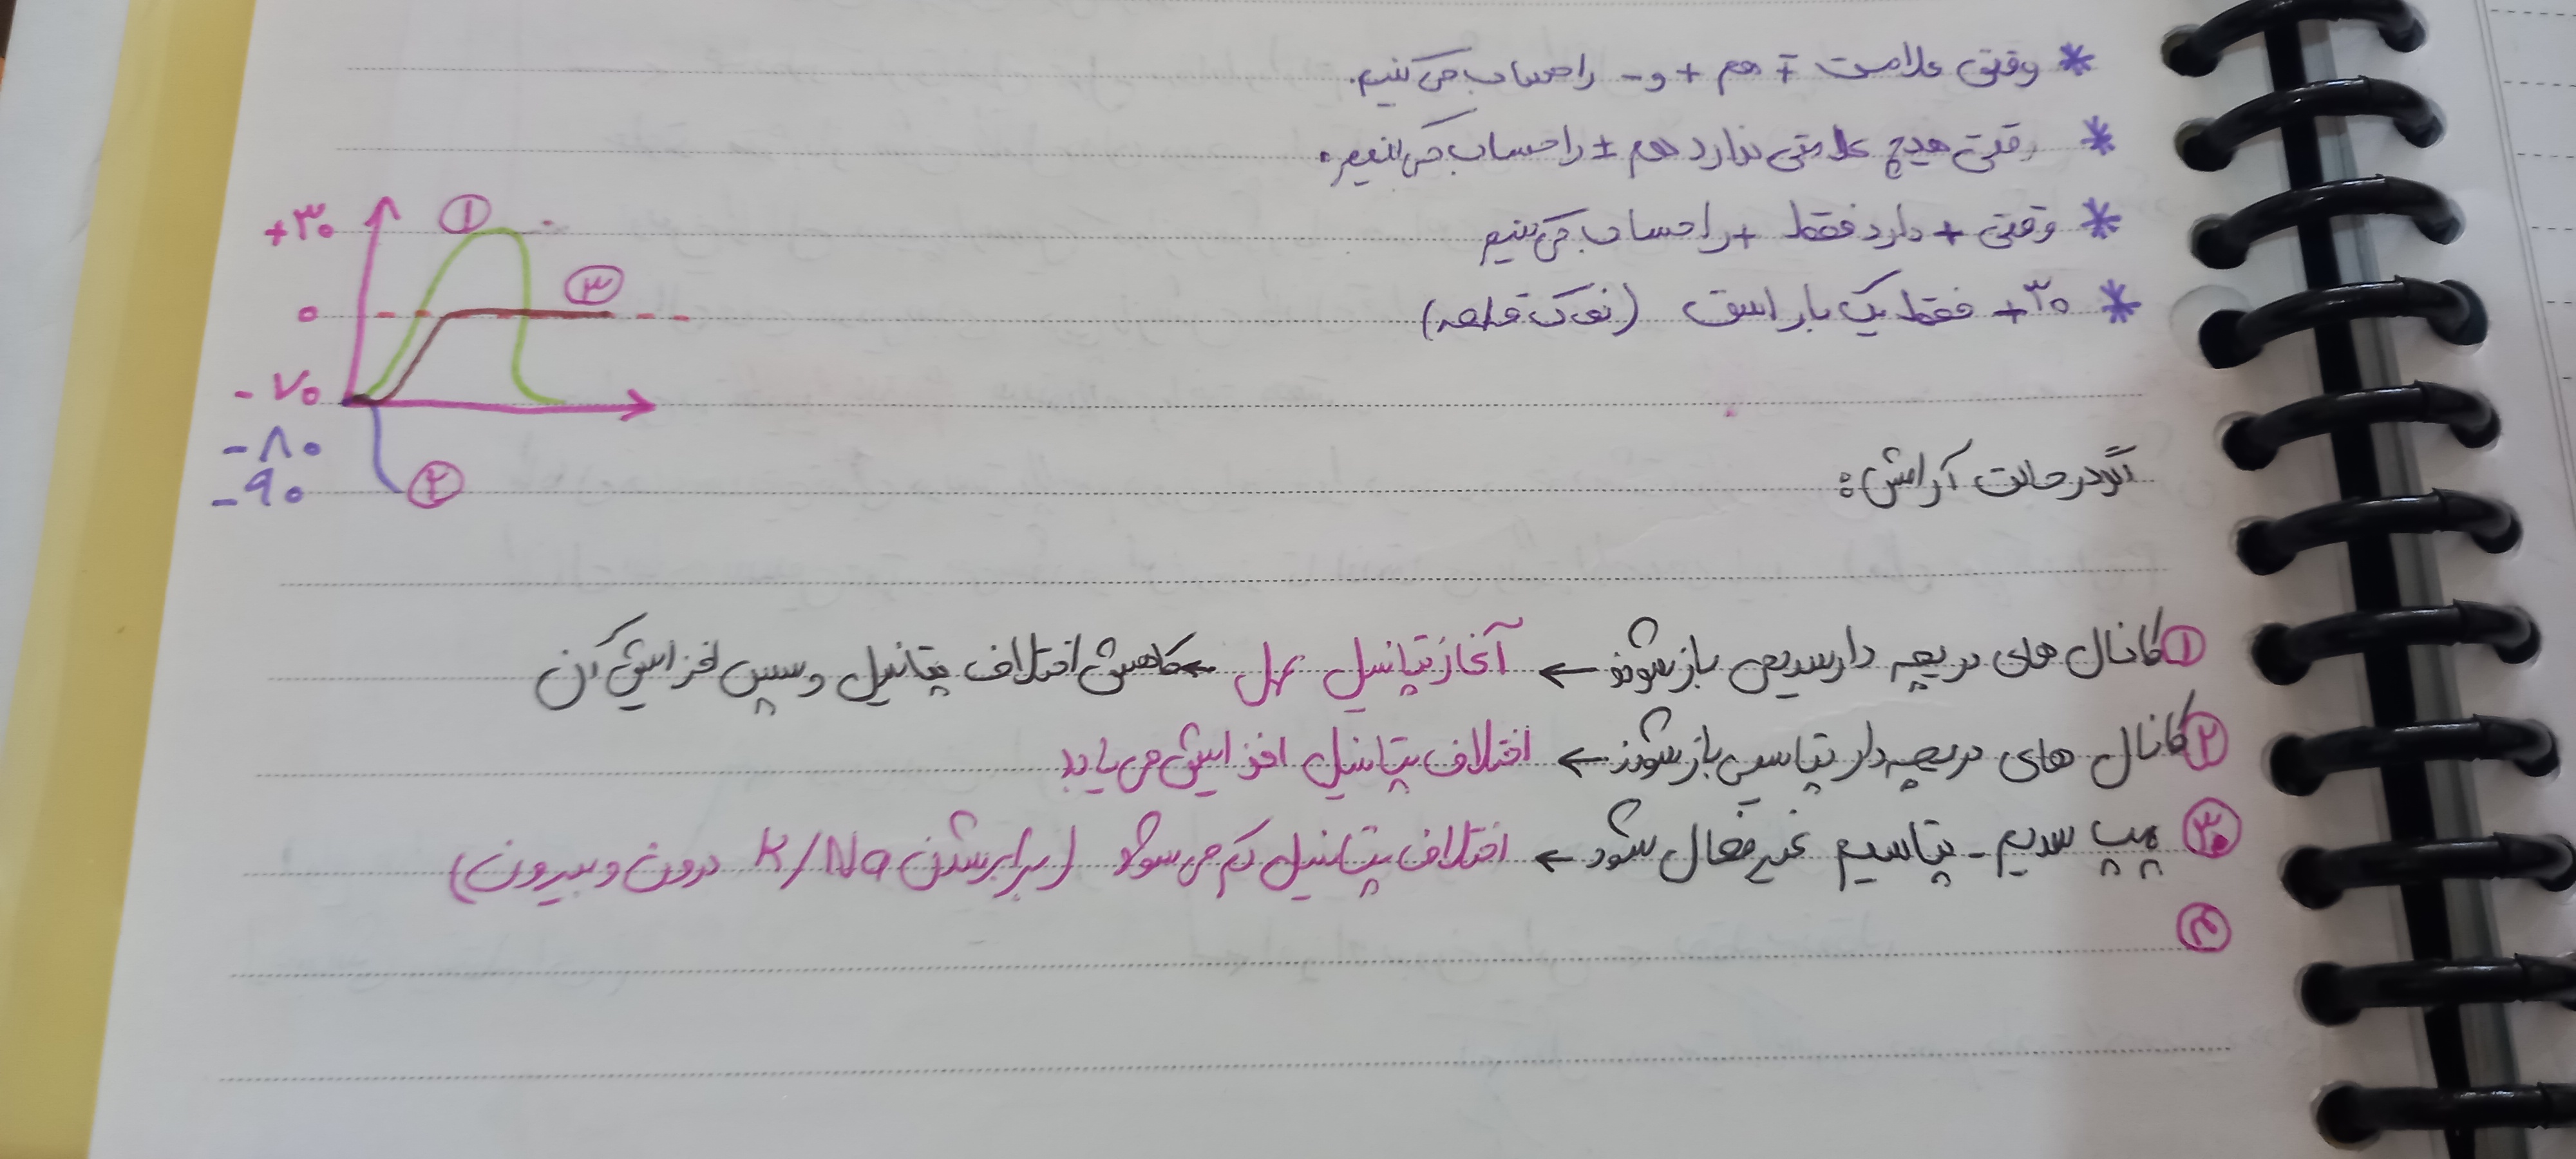 * وقتی علامت ∓ هم + و - را حساب می‌کنیم.
* وقتی هیچ علامتی ندارد هم ± را حساب می‌کنیم.
* وقتی + دارد فقط + را حساب می‌کنیم
* +۳۰ فقط یک بار است (نوک قله)
+۳۰
۰
-۷۰
-۸۰
-۹۰
①
③
②
اگر در حالت آرامش:
① کانال های دریچه دار سدیمی باز شوند ← آغاز پتانسیل عمل ← کاهش اختلاف پتانسیل و سپس افزایش آن
② کانال های دریچه دار پتاسیمی باز شوند ← اختلاف پتانسیل افزایش می‌یابد
③ پمپ سدیم - پتاسیم غیر فعال شود ← اختلاف پتانسیل کم می‌شود (برابر شدن K/Na درون و بیرون)
④